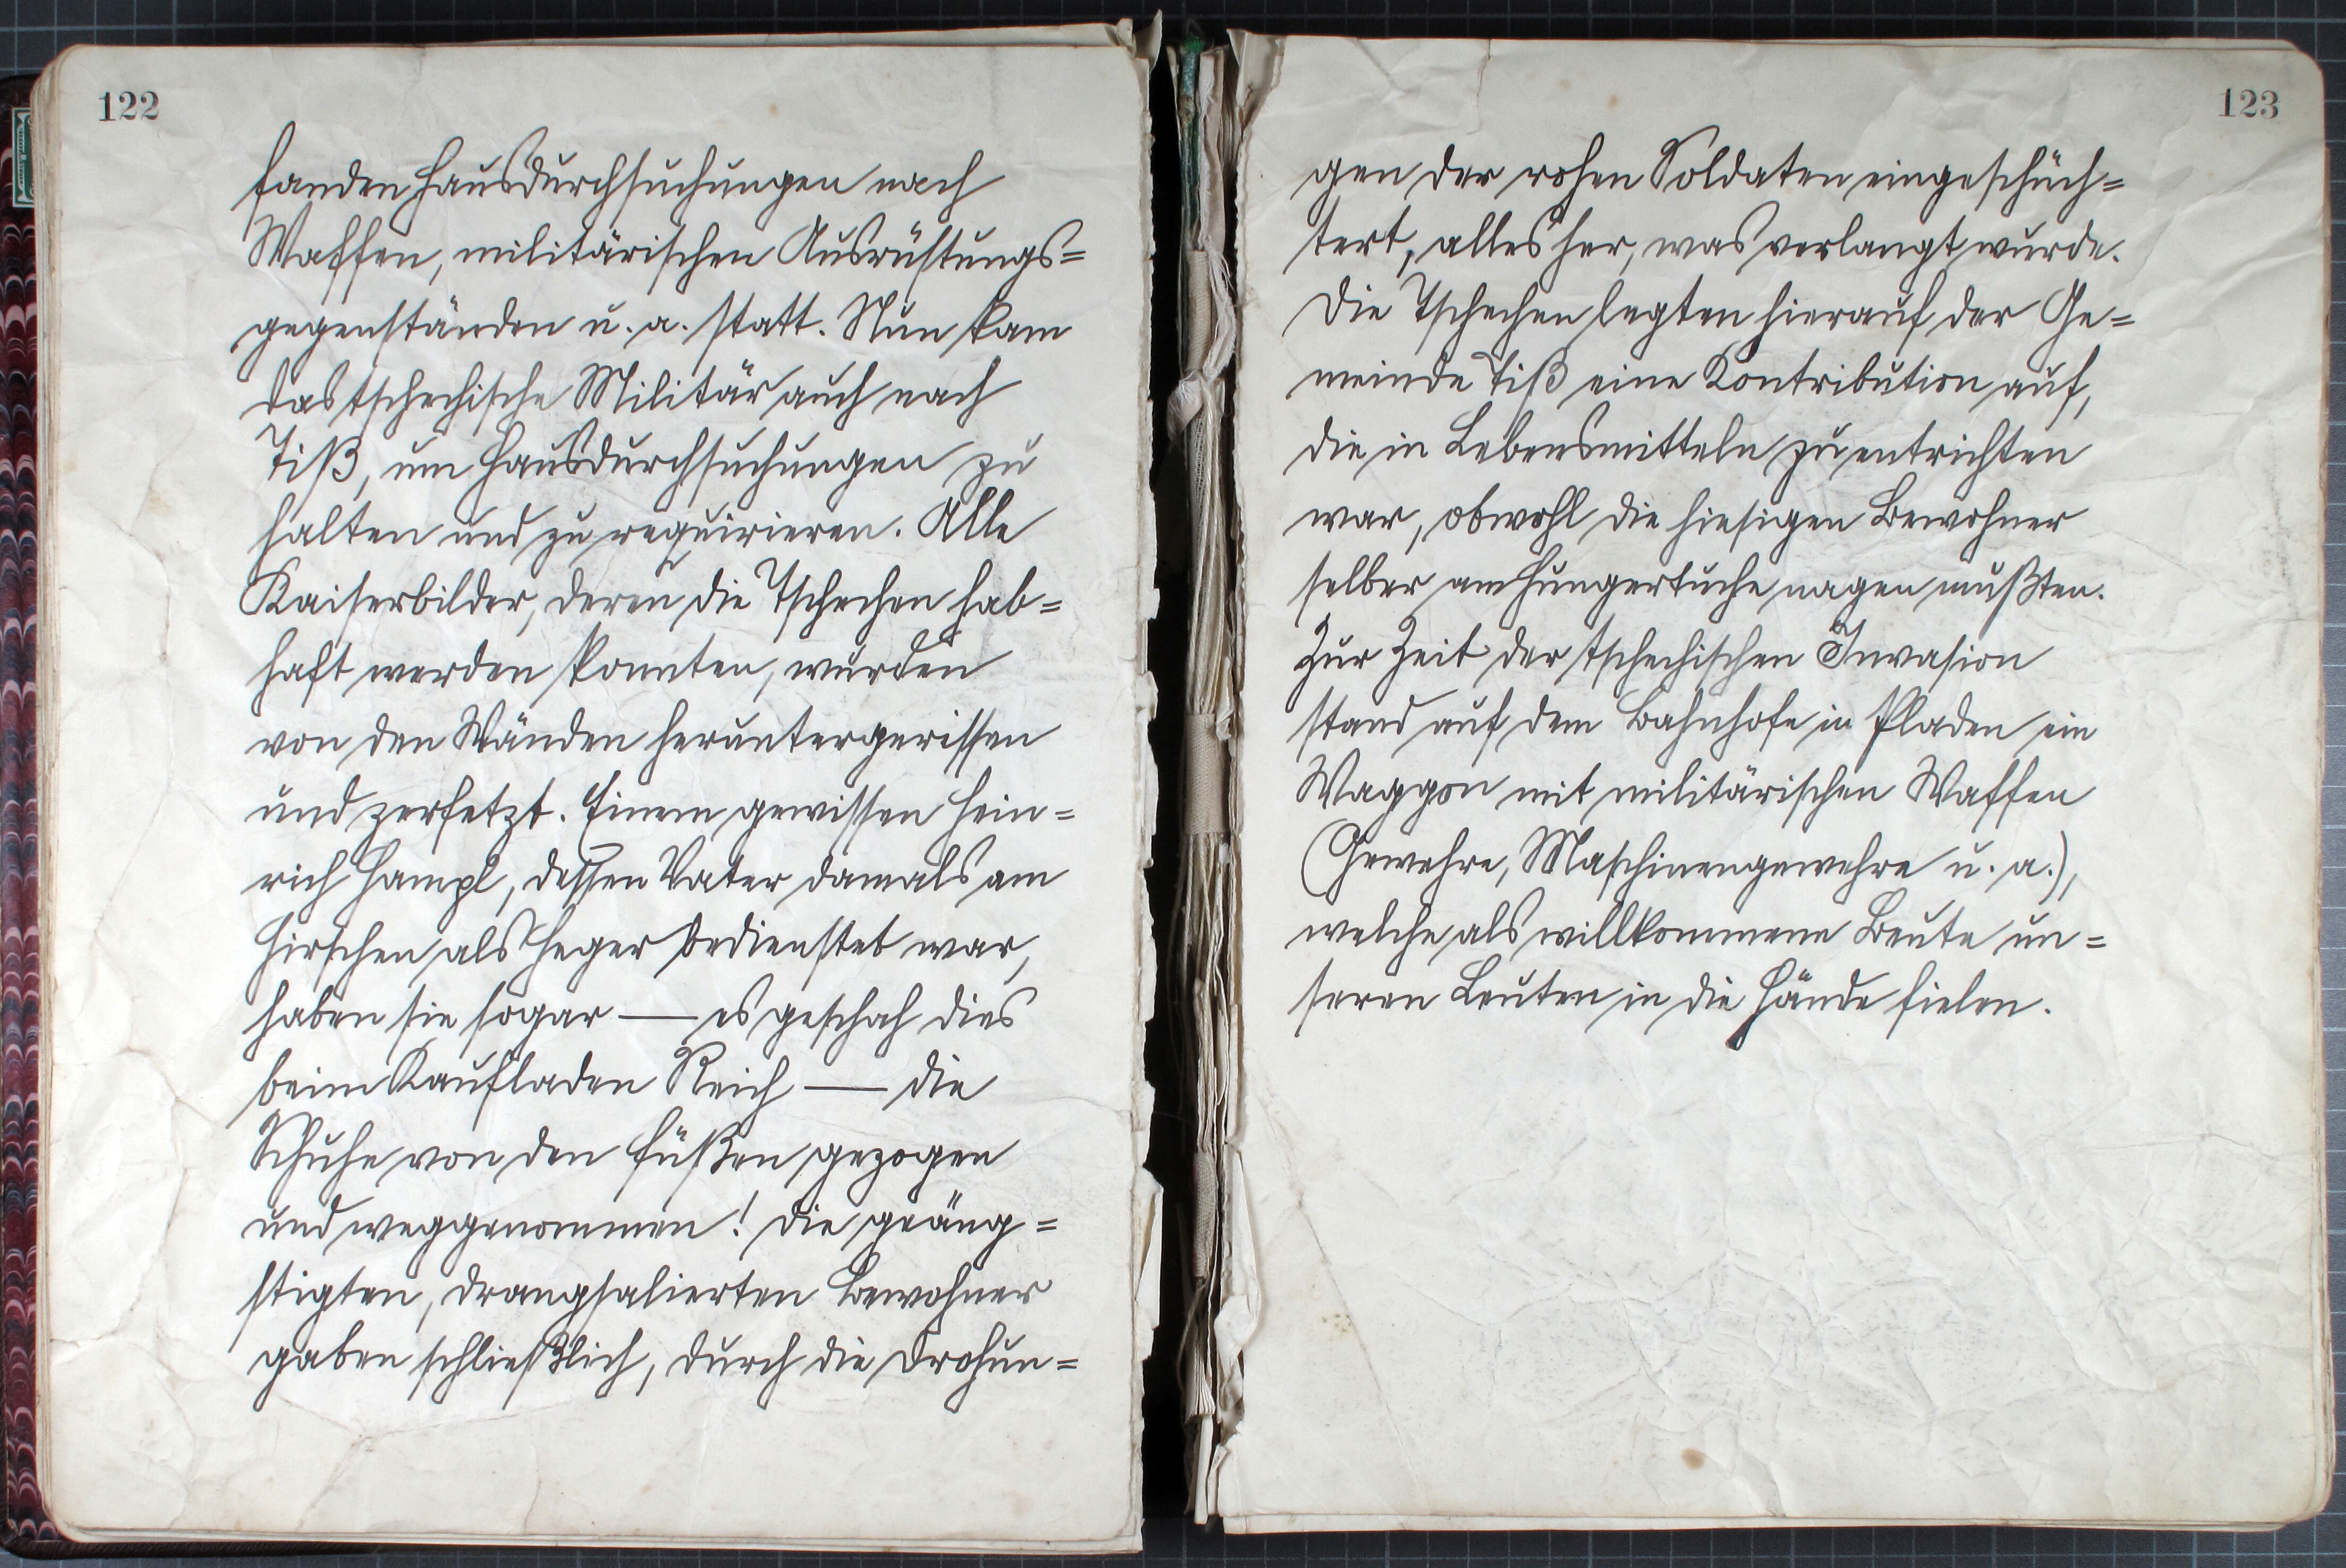 122
fanden Hausdurchsuchungen nach
Waffen, militärischen Ausrüstungs=
gegenständen u. a. statt. Nun kam
das tschechische Militär auch nach
Tiß, um Hausdurchsuchungen zu
halten und zu requirieren. Alle
Kaiserbilder, deren die Tschechen hab=
haft werden konnten, wurden
von den Wänden heruntergerissen
und zerfetzt. Einem gewissen Hein=
rich Hampl, dessen Vater damals am
Hirschen als Heger bedienstet war,
haben sie sogar — es geschah dies
beim Kaufladen Reich — die
Schuhe von den Füßen gezogen
und weggenommen! Die geäng=
stigten, drangsalierten Bewohner
gaben schließlich, durch die Drohun=
123
gen der rohen Soldaten eingeschüch=
tert, alles her, was verlangt wurde.
Die Tschechen legten hierauf der Ge=
meinde Tiß eine Kontribution auf,
die in Lebensmitteln zu entrichten
war, obwohl die hiesigen Bewohner
selber am Hungertuche nagen mußten.
Zur Zeit der tschechischen Invasion
stand auf dem Bahnhofe in Pladen ein
Waggon mit militärischen Waffen
(Gewehre, Maschinengewehre u. a.),
welche als willkommene Beute un=
seren Leuten in die Hände fielen.